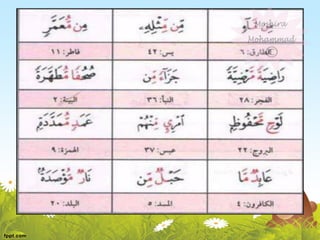 مِّن مَّآءٍ مِّن مِّثْلِهِۦ مِن مُّعَمَّرٍ
الطارق: ٦ يس: ٤٢ فاطر: ١١
رَاضِيَةً مَّرْضِيَّةً جَزَآءً مِّن صُحُفًا مُّطَهَّرَةً
الفجر: ٢٨ النبأ: ٣٦ البينة: ٢
لَوْحٍ مَّحْفُوظٍ ٱمْرِئٍ مِّنْهُمْ عَمَدٍ مُّمَدَّدَةٍ
البروج: ٢٢ عبس: ٣٧ الهمزة: ٩
عَابِدٌ مَّا حَبْلٌ مِّن نَارٌ مُّؤْصَدَةٌ
الكافرون: ٤ المسد: ٥ البلد: ٢٠
Mohammad
©
fppt.com